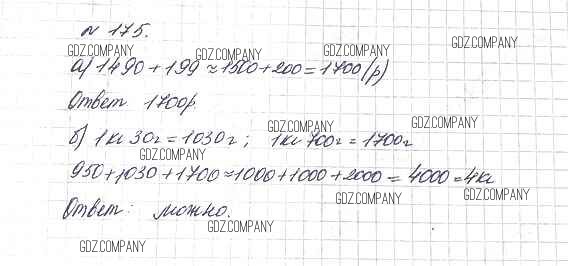 № 175.
GDZ.COMPANY GDZ.COMPANY GDZ.COMPANY GDZ.COMPANY
а) 1490 + 199 ≈ 1500 + 200 = 1700 (р)
Ответ 1700р
GDZ.COMPANY GDZ.COMPANY
б) 1кг 30г = 1030г; 1кг 700г = 1700г
GDZ.COMPANY
950 + 1030 + 1700 ≈ 1000 + 1000 + 2000 = 4000 = 4кг
GDZ.COMPANY GDZ.COMPANY
Ответ: можно.
GDZ.COMPANY
GDZ.COMPANY